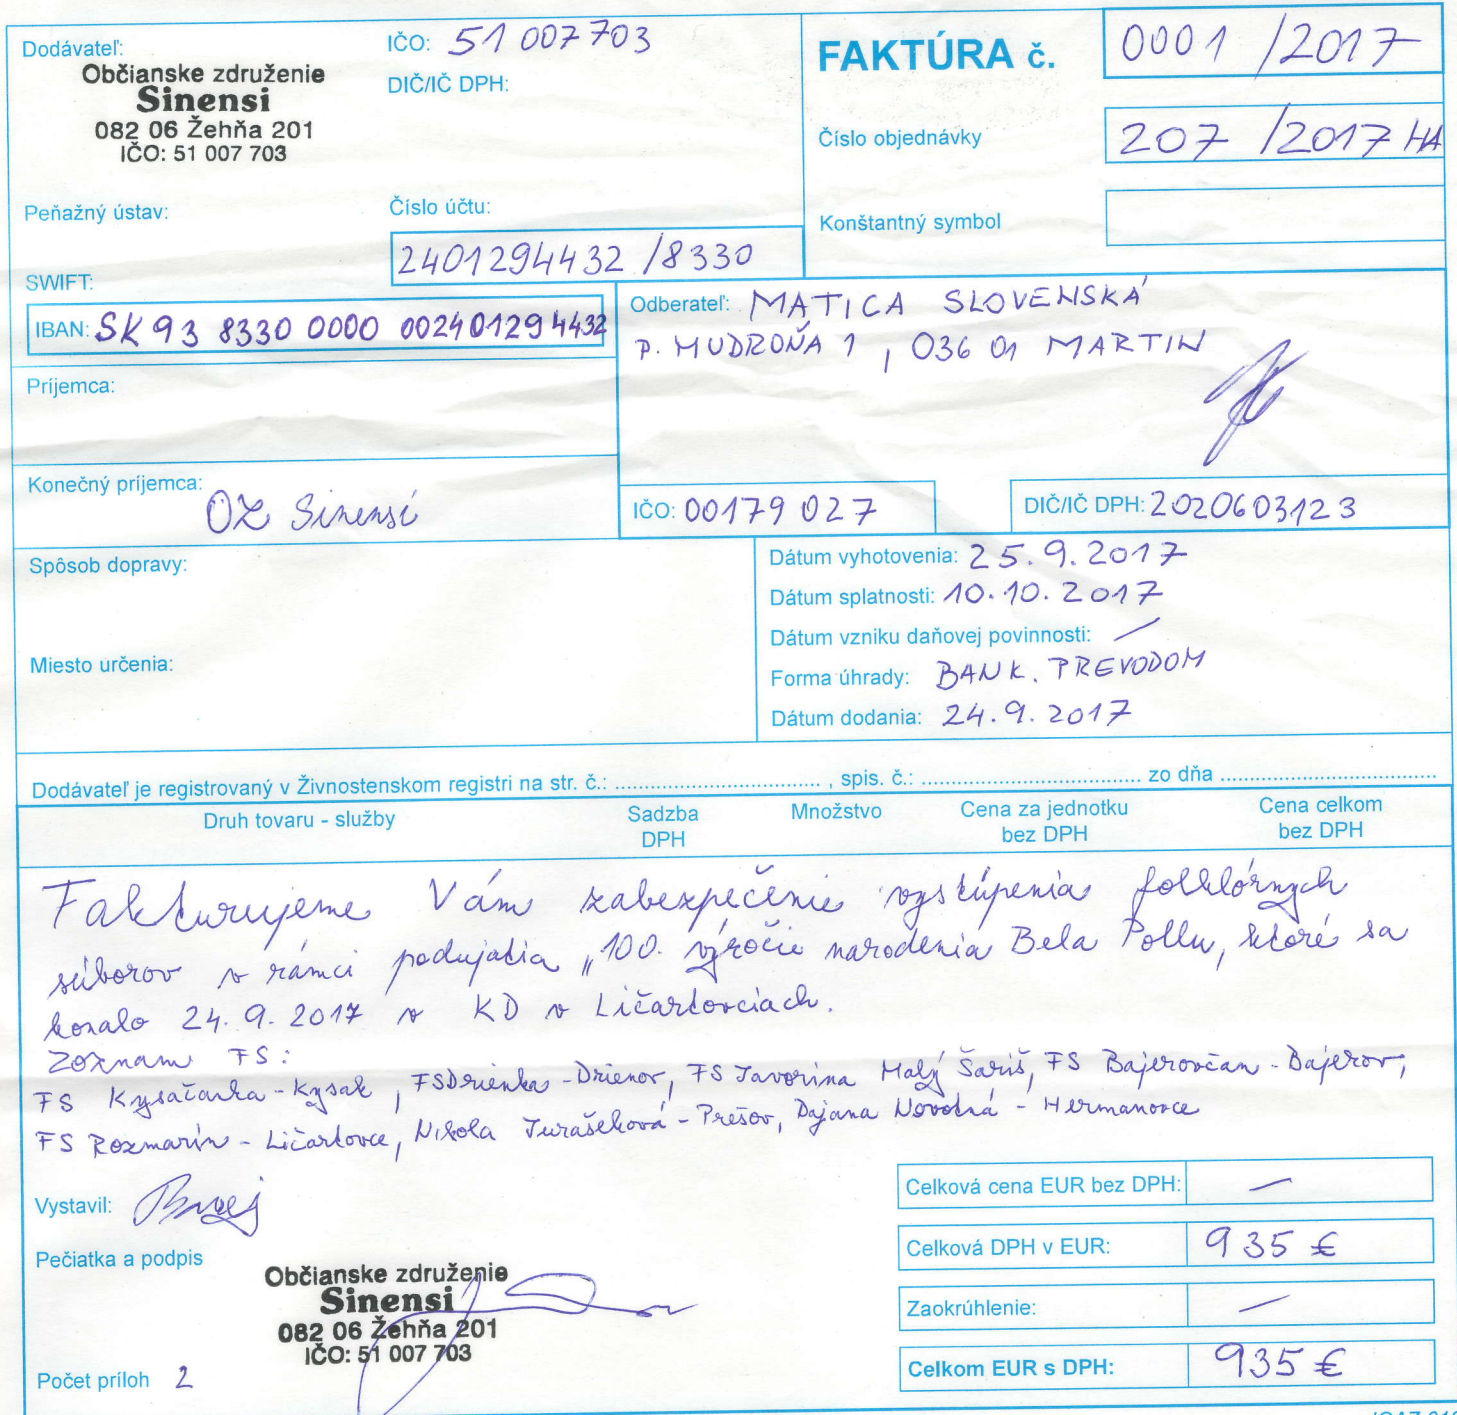 Dodávateľ:
Občianske združenie
Sinensi
082 06 Žehňa 201
IČO: 51 007 703
IČO: 51 007 703
DIČ/IČ DPH:
FAKTÚRA č. 0001 /2017
Číslo objednávky 207 /2017 HA
Konštantný symbol
Peňažný ústav:
Číslo účtu:
2401294432 /8330
SWIFT:
IBAN: SK 93 8330 0000 002401294432
Odberateľ: MATICA SLOVENSKÁ
P. MUDROŇA 1, 036 01 MARTIN
Príjemca:
Konečný príjemca:
OZ Sinensi
IČO: 00179 027
DIČ/IČ DPH: 2020603123
Spôsob dopravy:
Miesto určenia:
Dátum vyhotovenia: 25. 9. 2017
Dátum splatnosti: 10. 10. 2017
Dátum vzniku daňovej povinnosti: —
Forma úhrady: BANK. PREVODOM
Dátum dodania: 24. 9. 2017
Dodávateľ je registrovaný v Živnostenskom registri na str. č.: .................................. , spis. č.: .................................. zo dňa ..................................
Druh tovaru - služby
Sadzba
DPH
Množstvo
Cena za jednotku
bez DPH
Cena celkom
bez DPH
Fakturujeme Vám zabezpečenie vystúpenia folklórnych
súborov v rámci podujatia „100. výročie narodenia Bela Pollu, ktoré sa
konalo 24. 9. 2017 v KD v Ličartovciach.
Zoznam FS:
FS Kysačanka - Kysak, FS Drienka - Drienov, FS Javorina Malý Šariš, FS Bajerovčan - Bajerov,
FS Rozmarín - Ličartovce, Nikola Jurašeková - Prešov, Dajana Novotná - Hermanovce
Vystavil:
Pečiatka a podpis
Občianske združenie
Sinensi
082 06 Žehňa 201
IČO: 51 007 703
Počet príloh 2
Celková cena EUR bez DPH: —
Celková DPH v EUR: 935 €
Zaokrúhlenie: —
Celkom EUR s DPH: 935 €